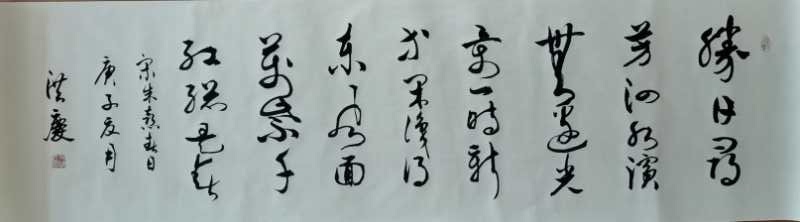 勝日尋
芳泗水濱
無邊光
景一時新
等閒識得
東風面
萬紫千
紅總是春
宋朱熹春日
庚子夏月
洪慶